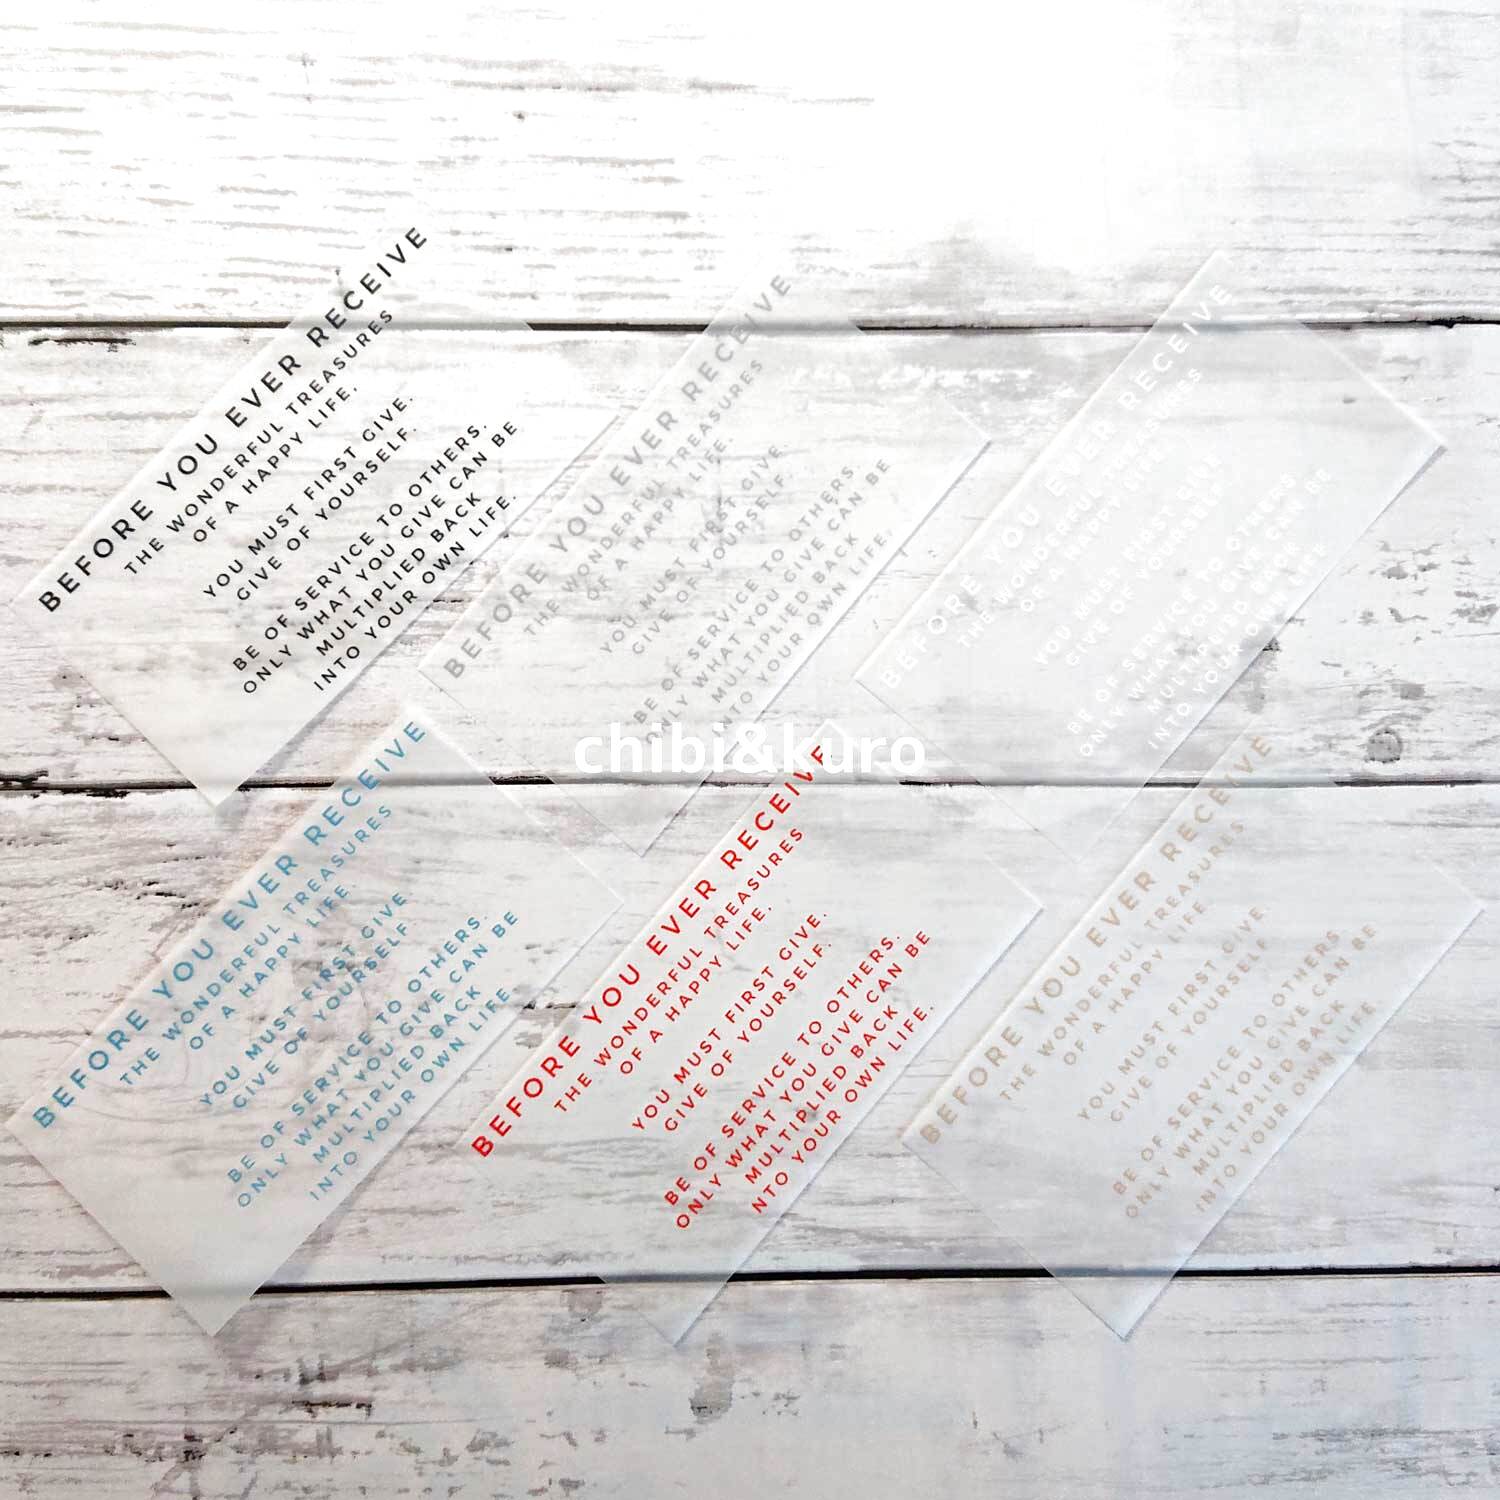 BEFORE YOU EVER RECEIVE
THE WONDERFUL TREASURES
OF A HAPPY LIFE.
YOU MUST FIRST GIVE.
GIVE OF YOURSELF.
BE OF SERVICE TO OTHERS.
ONLY WHAT YOU GIVE CAN BE
MULTIPLIED BACK
INTO YOUR OWN LIFE.
BEFORE YOU EVER RECEIVE
THE WONDERFUL TREASURES
OF A HAPPY LIFE
YOU MUST FIRST GIVE.
GIVE OF YOURSELF.
BE OF SERVICE TO OTHERS.
ONLY WHAT YOU GIVE CAN BE
MULTIPLIED BACK
INTO YOUR OWN LIFE.
BEFORE YOU EVER RECEIVE
OF A HAPPY
YOU
GIVE OF
BE OF SERVICE TO OTHERS
ONLY WHAT YOU GIVE CAN BE
MULTIPLIED BACK
INTO YOUR OWN
chibi&kuro
BEFORE YOU EVER RECEIVE
THE WONDERFUL TREASURES
OF A HAPPY LIFE.
YOU MUST FIRST GIVE.
GIVE OF YOURSELF.
BE OF SERVICE TO OTHERS.
ONLY WHAT YOU GIVE CAN BE
MULTIPLIED BACK
INTO YOUR OWN LIFE.
BEFORE YOU EVER RECEIVE
THE WONDERFUL TREASURES
OF A HAPPY LIFE.
YOU MUST FIRST GIVE.
GIVE OF YOURSELF.
BE OF SERVICE TO OTHERS.
ONLY WHAT YOU GIVE CAN BE
MULTIPLIED BACK
NTO YOUR OWN LIFE.
BEFORE YOU EVER RECEIVE
THE WONDERFUL TREASURES
OF A HAPPY LIFE
YOU MUST FIRST GIVE.
GIVE OF YOURSELF
BE OF SERVICE TO OTHERS
ONLY WHAT YOU GIVE CAN BE
MULTIPLIED BACK
INTO YOUR OWN LIFE